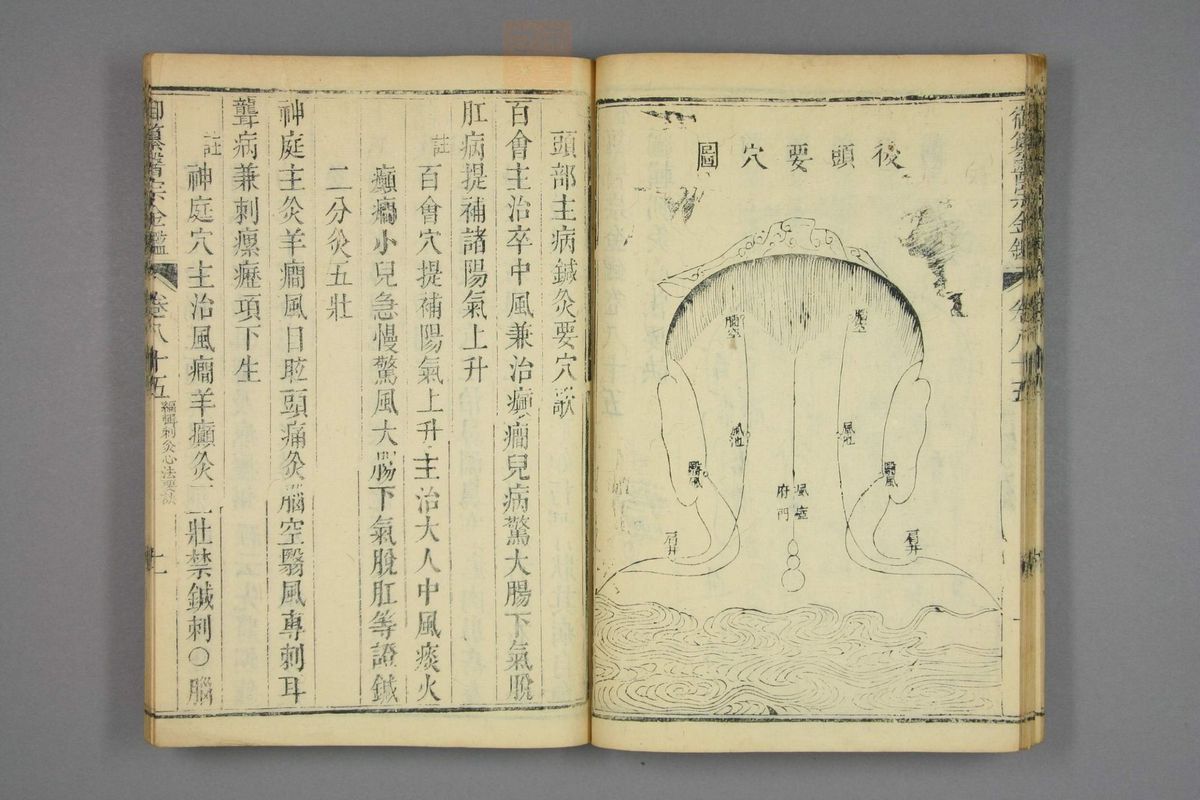 後頭要穴圖
腦空
腦空
風池
風池
翳風
翳風
風府
瘂門
肩井
肩井
御纂醫宗金鑑
卷八十五
頭部主病鍼灸要穴歌
百會主治卒中風兼治癲癇兒病驚大腸下氣脫
肛病提補諸陽氣上升
註
百會穴提補陽氣上升主治大人中風痰火
癲癇小兒急慢驚風大腸下氣脫肛等證鍼
二分灸五壯
神庭主灸羊癇風目眩頭痛灸腦空翳風專刺耳
聾病兼刺瘰癧項下生
註
神庭穴主治風癇羊癲灸三壯禁鍼刺○腦
御纂醫宗金鑑
卷八十五
編輯刺灸心法要訣